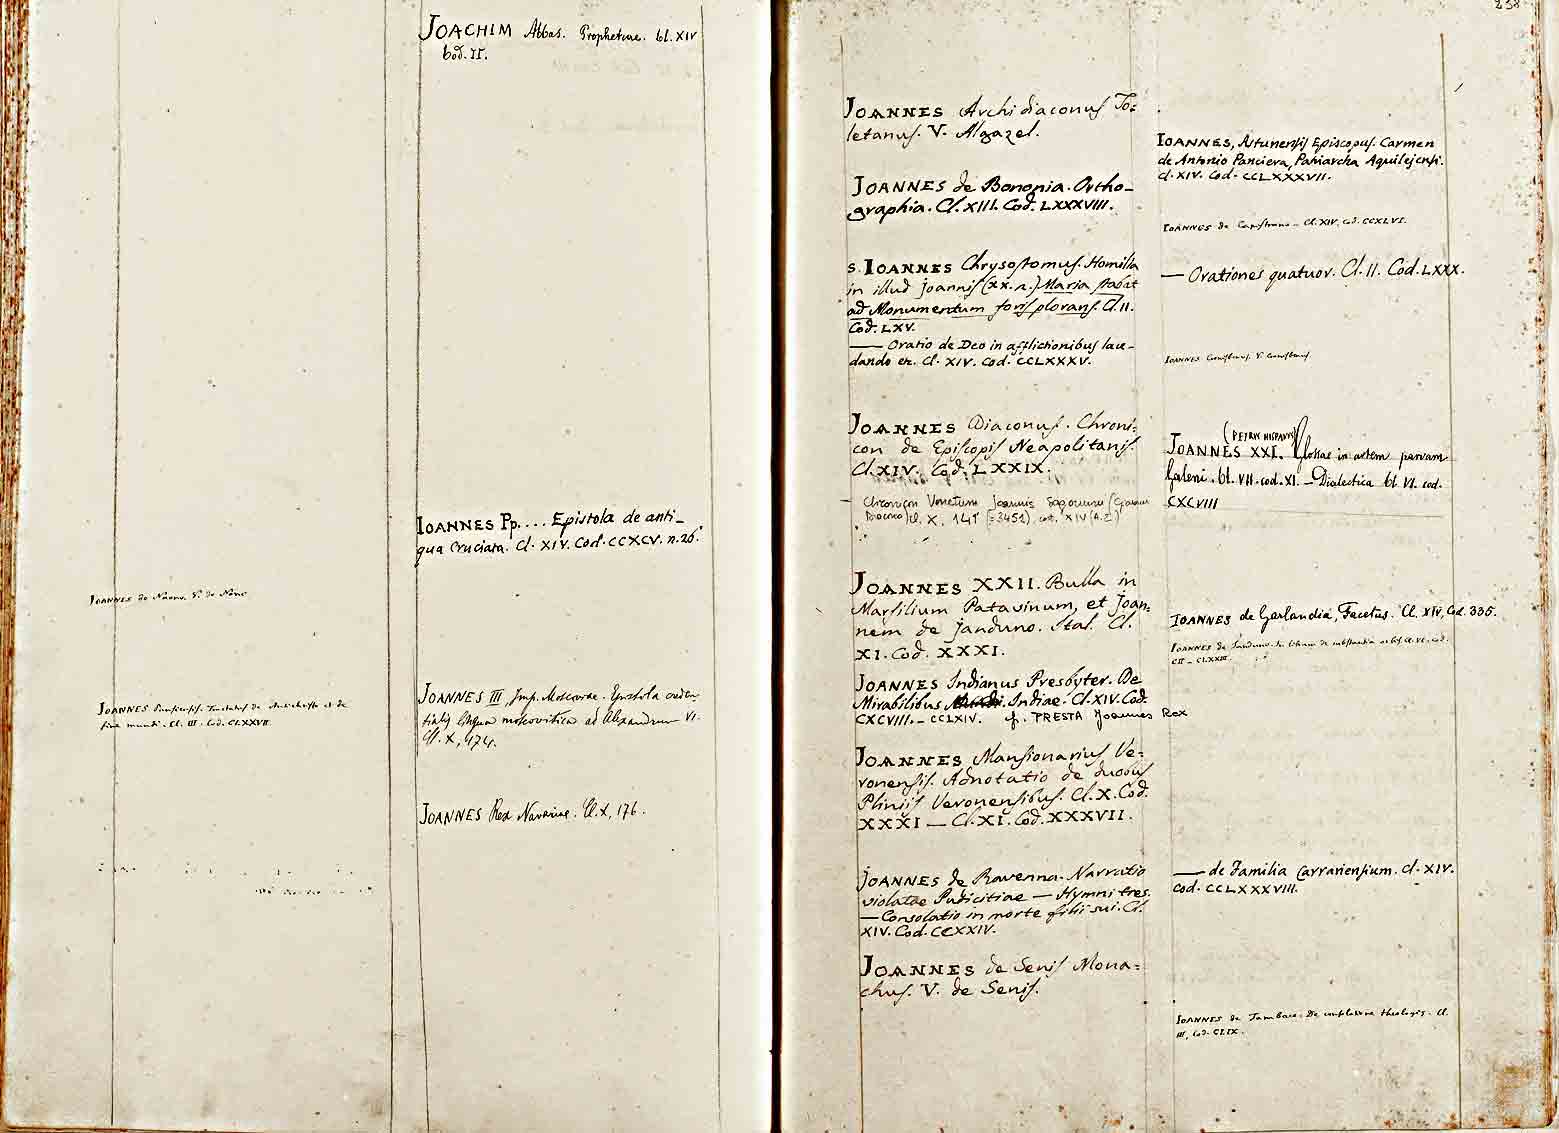 JOACHIM Abbas. Prophetiae. Cl. XIV
Cod. II.
IOANNES Pp.... Epistola de anti-
qua Cruciata. Cl. XIV. Cod. CCXCV. n. 26.
IOANNES de Nanno. V. de Nano
JOANNES III, Imp. Moscoviae. Epistola creden-
tialis lingua moscovitica ad Alexandrum VI.
Cl. X, 174.
IOANNES Parisiensis. Tractatus de Antichristo et de
fine mundi. Cl. III. Cod. CLXXVII.
JOANNES Rex Navarrae. Cl. X, 176.
238
JOANNES Archidiaconus To:
letanus. V. Algazel.
JOANNES de Bononia. Ortho-
graphia. Cl. XIII. Cod. LXXXVIII.
S. IOANNES Chrysostomus. Homilia
in illud Joannis (XX. n.) Maria stabat
ad Monumentum foris plorans. Cl. II.
Cod. LXV.
— Oratio de Deo in afflictionibus lau-
dando etc. Cl. XIV. Cod. CCLXXXV.
JOANNES Diaconus. Chroni:
con de Episcopis Neapolitanis.
Cl. XIV. Cod. LXXIX.
— Chronicon Venetum Joannis Sagornini (Giovanni
Diacono) Cl. X. 141 (=3451). cod. XIV (A.2)
JOANNES XXII. Bulla in
Marsilium Patavinum, et Joan:
nem de Janduno. Ital. Cl.
XI. Cod. XXXI.
JOANNES Indianus Presbyter. De
Mirabilibus Indiae. Cl. XIV. Cod.
CXCVIII. – CCLXIV. cf. PRESTA Joannes Rex
JOANNES Mansionarius Ve:
ronensis. Adnotatio de duobus
Pliniis Veronensibus. Cl. X. Cod.
XXXI — Cl. XI. Cod. XXXVII.
JOANNES de Ravenna. Narratio
violatae Pudicitiae — Hymni tres.
— Consolatio in morte filii sui. Cl.
XIV. Cod. CCXXIV.
JOANNES de Senis Mona:
chus. V. de Senis.
IOANNES, Astunensis Episcopus. Carmen
de Antonio Panciera, Patriarcha Aquilejensi.
Cl. XIV. Cod. CCLXXXVII.
IOANNES de Capistrano – Cl. XIV, cod. CCXLVI.
— Orationes quatuor. Cl. II. Cod. LXXX.
(PETRUS HISPANUS)
JOANNES XXI. Glossae in artem parvam
Galeni. Cl. VII. cod. XI. – Dialectica Cl. VI. cod.
CXCVIII
IOANNES de Garlandia, Facetus. Cl. XIV, Cod. 335.
IOANNES de Janduno. In librum de substantia orbis Cl. VI. cod.
CII – CLXXIII.
— de Familia Carrariensium. Cl. XIV.
Cod. CCLXXXVIII.
IOANNES de Tambaco. De consolatione theologiae. Cl.
III, Cod. CLIX.